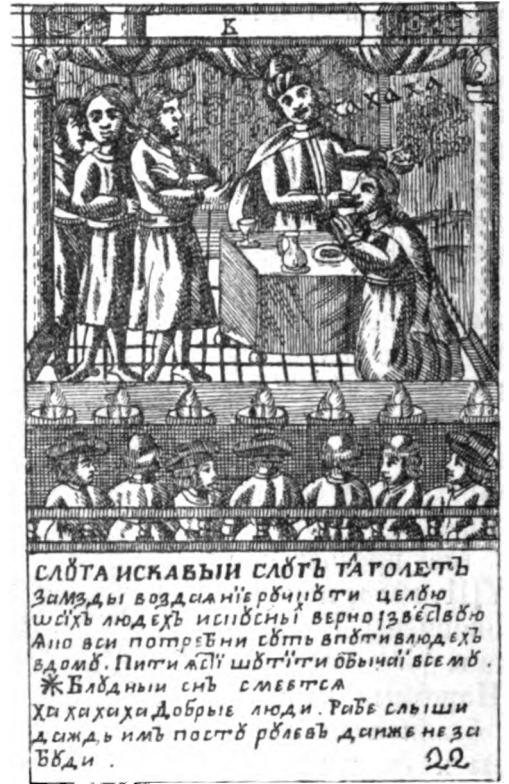 К
ха ха ха
СЛꙊГА ИСКАВЫИ СЛꙊГЪ ГЛГОЛЕТЪ
Замзды воздаѧнїе рꙋчнꙋти целꙋю
людехъ испꙋсны верно ізвествꙋю
Ꙗко вси потребни сꙋть впꙋтивлюдехъ
вдомꙋ. Пити ꙗсти шꙋтїти обычаї всемꙋ.
Блꙋдныи снъ смеетсѧ
Ха ха ха ха Добрые люди. Рабе слыши
даждь имъ посто рꙋлевъ даиже не за
бꙋди .
22